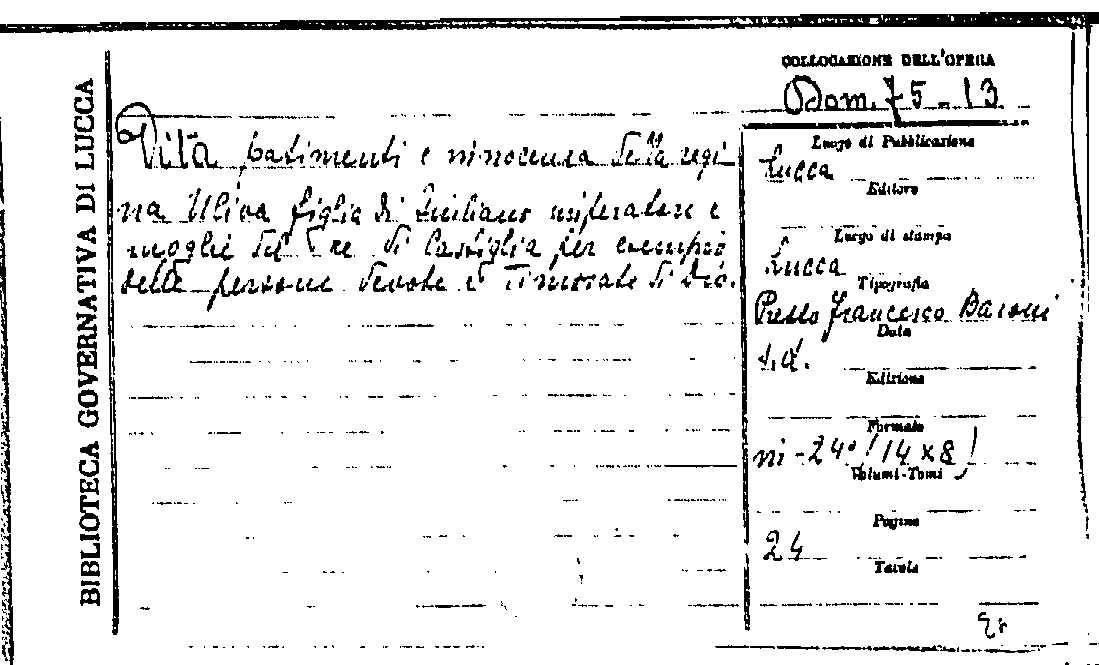 BIBLIOTECA GOVERNATIVA DI LUCCA
Vita patimenti e innocenza della regi
na Uliva figlia di Giuliano imperatore e
moglie del re di Castiglia per esempio
delle persone devote e timorate di Dio.
COLLOCAZIONE DELL'OPERA
Dom. 75-13
Luogo di Pubblicazione
Lucca
Editore
Luogo di stampa
Lucca
Tipografia
Presso Francesco Baroni
Data
s.d.
Edizione
Formato
in-24° (14 x 8)
Volumi-Tomi
Pagine
24
Tavole